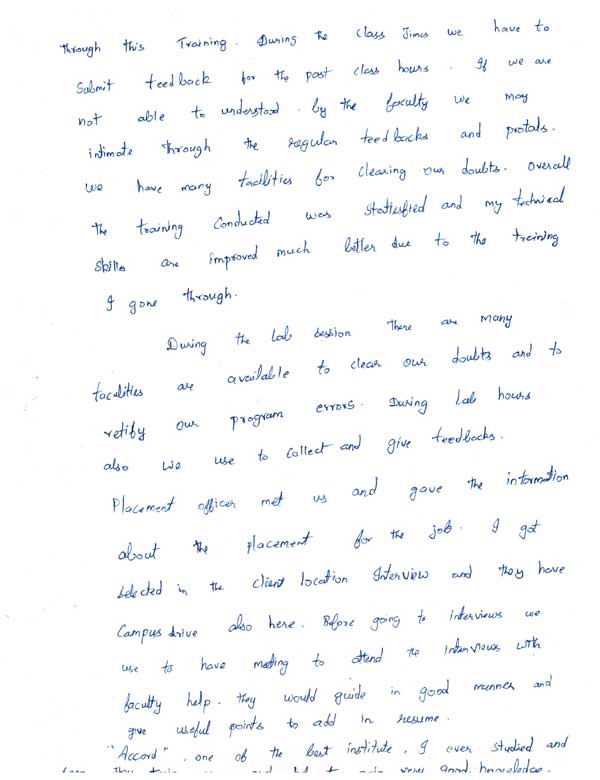 through this Training. During the class Times we have to
Submit feedback for the past class hours. If we are
not able to understood. by the faculty we may
intimate through the regular feedbacks and protals.
we have many facilities for clearing our doubts. Overall
the training conducted was Statisfied and my technical
skills are improved much better due to the treining
I gone through.
During the Lab session there are many
faculities are available to clear our doubts and to
retify our program errors. During Lab hours
also we use to collect and give feedbacks.
Placement officer met us and gave the information
about the placement for the job. I got
selected in the client location Interview and they have
Campus drive also here. Before going to interviews we
use to have meeting to attend the interviews with
faculty help. they would guide in good manner and
give useful points to add in resume.
"Accord", one of the best institute, I ever studied and
very good knowledge.